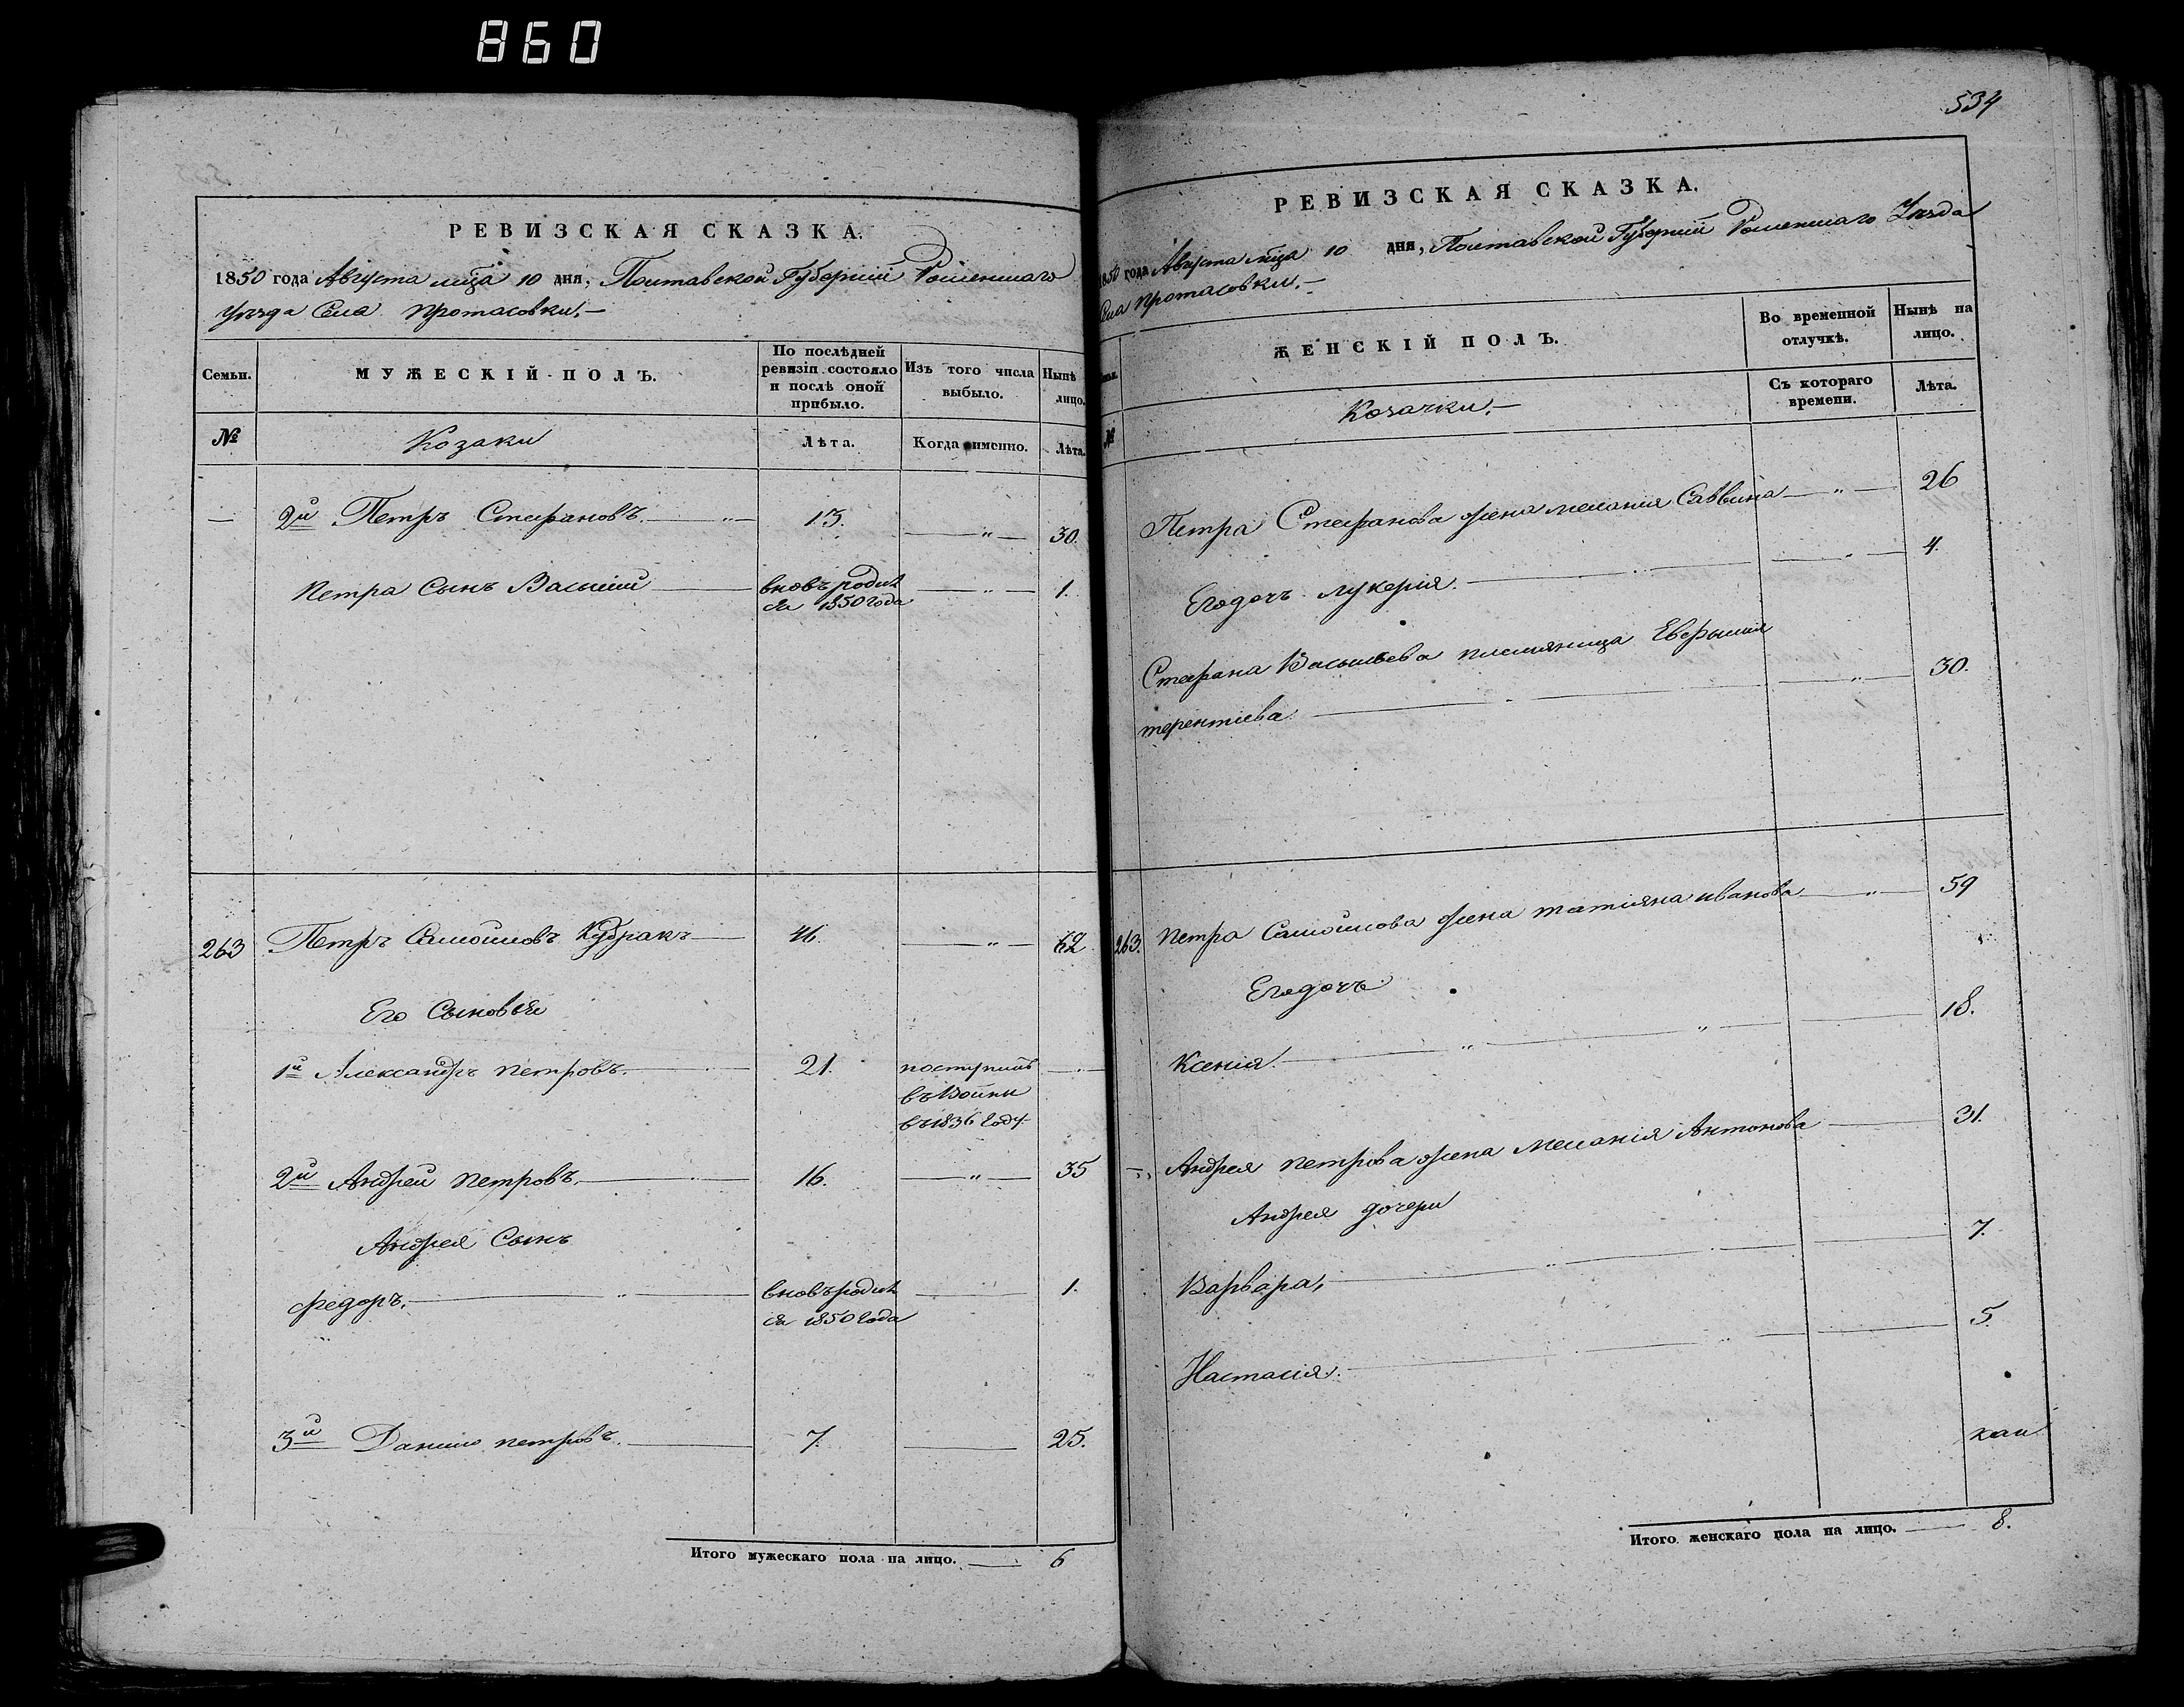 860
РЕВИЗСКАЯ СКАЗКА.
1850 года Августа мца 10 дня, Полтавской Губерніи Роменшаго
уезда Села Протасовки.—
Семьи.
МУЖЕСКІЙ ПОЛЪ.
По послѣдней
ревизіи состояло
и послѣ оной
прибыло.
Изъ того числа
выбыло.
Нынѣ
лицо.
№
Козаки
Лѣта.
Когда именно.
Лѣта.
— 2й Петръ Стефановъ. — „ — 13. — „ — 30.
Петра Сынъ Василий — вновь родил — „ — 1.
ся 1850 года
263 Петръ Самойловъ Кубракъ — 46. — „ — 62
Его Сыновья
1й Александръ Петровъ. — 21. поступилъ —
въ Войны
въ 1836 году.
2й Андрей Петровъ. — 16. — „ — 35
Андрея Сынъ
Федоръ. — „ — вновь родил — 1.
ся 1850 года
3й Данило Петровъ. — 7. — 25.
Итого мужескаго пола на лицо. — 6
534
РЕВИЗСКАЯ СКАЗКА.
1850 года Августа мца 10 дня, Полтавской Губерніи Роменшаго Уезда
Села Протасовки.—
ЖЕНСКІЙ ПОЛЪ.
Во временной
отлучкѣ.
Нынѣ на
лицо.
№
Козачки.—
Съ котораго
времени.
Лѣта.
Петра Стефанова жена Мелания Саввина — „ — 26
Его дочь Лукерия. — „ — 4.
Стефана Васильева племянница Евфимия
Терентиева. — „ — 30.
263. Петра Самойлова жена Татияна Иванова — „ — 59
Его дочь
Ксения. — „ — „ — 18.
Андрея Петрова жена Мелания Антонова — 31.
Андрея дочери
Варвара, — „ — 7.
Настасия. — „ — 5.
Итого женскаго пола на лицо. — 8.